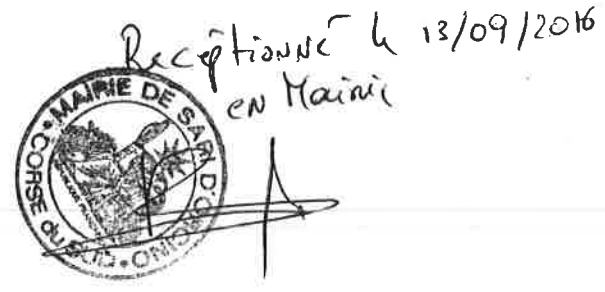 Receptionné le 13/09/2016
en Mairie
MAIRIE DE SARI D'ORCINO
CORSE du SUD